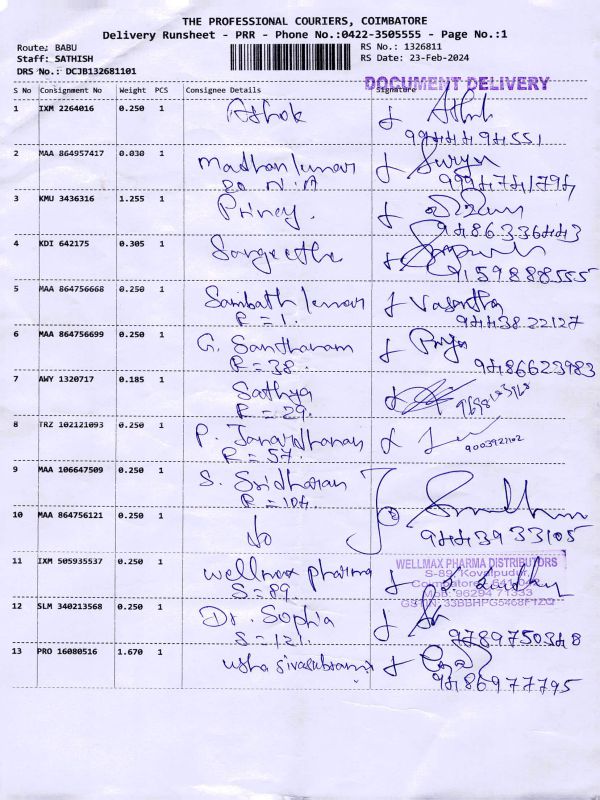 THE PROFESSIONAL COURIERS, COIMBATORE
Delivery Runsheet - PRR - Phone No.:0422-3505555 - Page No.:1
Route: BABU
RS No.: 1326811
Staff: SATHISH
RS Date: 23-Feb-2024
DRS No.: DCJB132681101
DOCUMENT DELIVERY
S No Consignment No Weight PCS Consignee Details Signature
1 IXM 2264016 0.250 1 Ashok
9944494551
2 MAA 864957417 0.030 1 Madhan kumar Surya
80 N.A 9994741794
3 KMU 3436316 1.255 1 Princy.
9486336443
4 KDI 642175 0.305 1 Sangeetha
9159888555
5 MAA 864756668 0.250 1 Sambath kumar Vasantha
R = 1. 9443822127
6 MAA 864756699 0.250 1 G. Santhanam Priya
R = 38. 9486623983
7 AWY 1320717 0.185 1 Sathya
R = 29.
8 TRZ 102121093 0.250 1 P. Janardhanan
R = 57. 9003921102
9 MAA 106647509 0.250 1 S. Sridharan
R = 104.
10 MAA 864756121 0.250 1 No
9443933105
11 IXM 505935537 0.250 1 Wellmax pharma
S = 89.
WELLMAX PHARMA DISTRIBUTORS
S-89, Kovaipudur,
Coimbatore - 641 042
Mob: 96294 71333
GSTIN: 33BBHPG5468F1ZQ
12 SLM 340213568 0.250 1 Dr. Sophia
S = 121. 9789750348
13 PRO 16080516 1.670 1 usha sivasubramani
9486977795